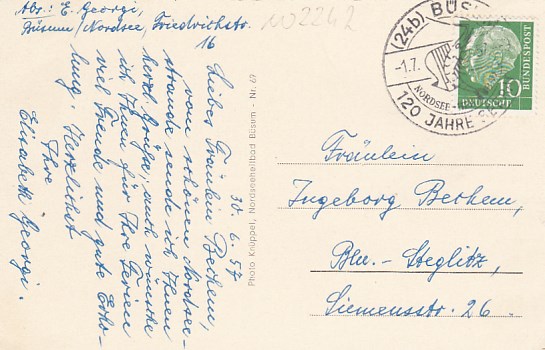 Abs: E. Georgi,
Büsum/Nordsee, Friedrichstr.
16
102242
30. 6. 57
Liebes Fräulein Bethem,
vom schönen Nordsee-
strande sende ich Ihnen
herzl. Grüße, auch wünsche
ich Ihnen für Ihre Ferien
viel Freude und gute Erho-
lung. Herzlichst
Ihre
Elisabeth Georgi.
Photo Knüppel, Nordseeheilbad Büsum - Nr. 69
(24b) BÜSU
-1.7.
NORDSEE-
120 JAHRE
10
DEUTSCHE
BUNDESPOST
Fräulein
Ingeborg Bethem,
Bln.-Steglitz,
Siemensstr. 26.